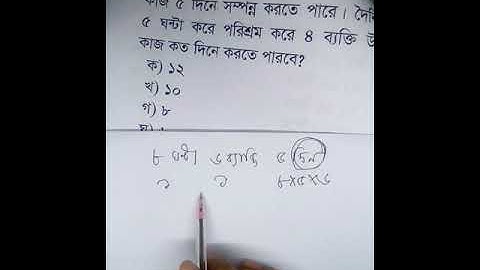 কাজ ৫ দিনে সম্পন্ন করতে পারে। দৈনি
৫ ঘন্টা করে পরিশ্রম করে ৪ ব্যক্তি উ
কাজ কত দিনে করতে পারবে?
ক) ১২
খ) ১০
গ) ৮
৮ ঘন্টা ৬ ব্যক্তি ৫ দিন
১ ১ ৮×৫×৬